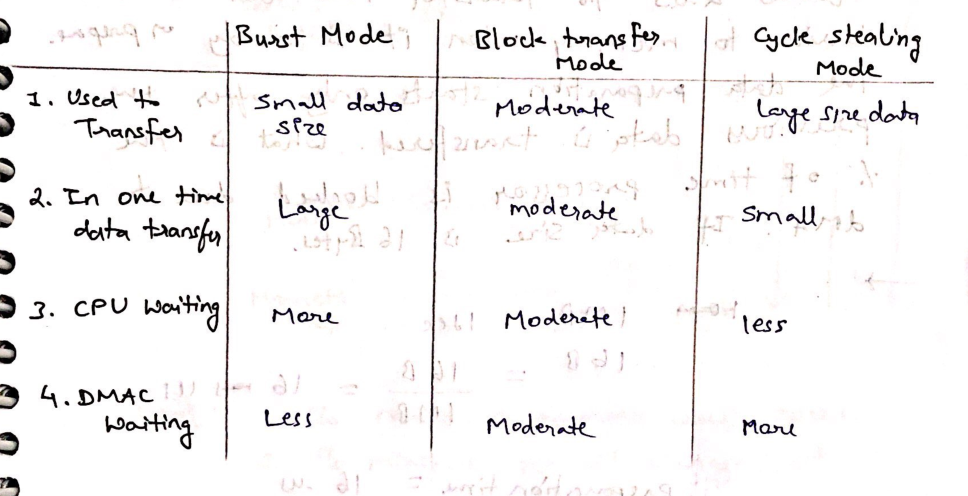 Burst Mode Block transfer Mode Cycle stealing Mode
1. Used to Transfer Small data size Moderate Large size data
2. In one time data transfer Large moderate Small
3. CPU Waiting More Moderate less
4. DMAC Waiting Less Moderate More